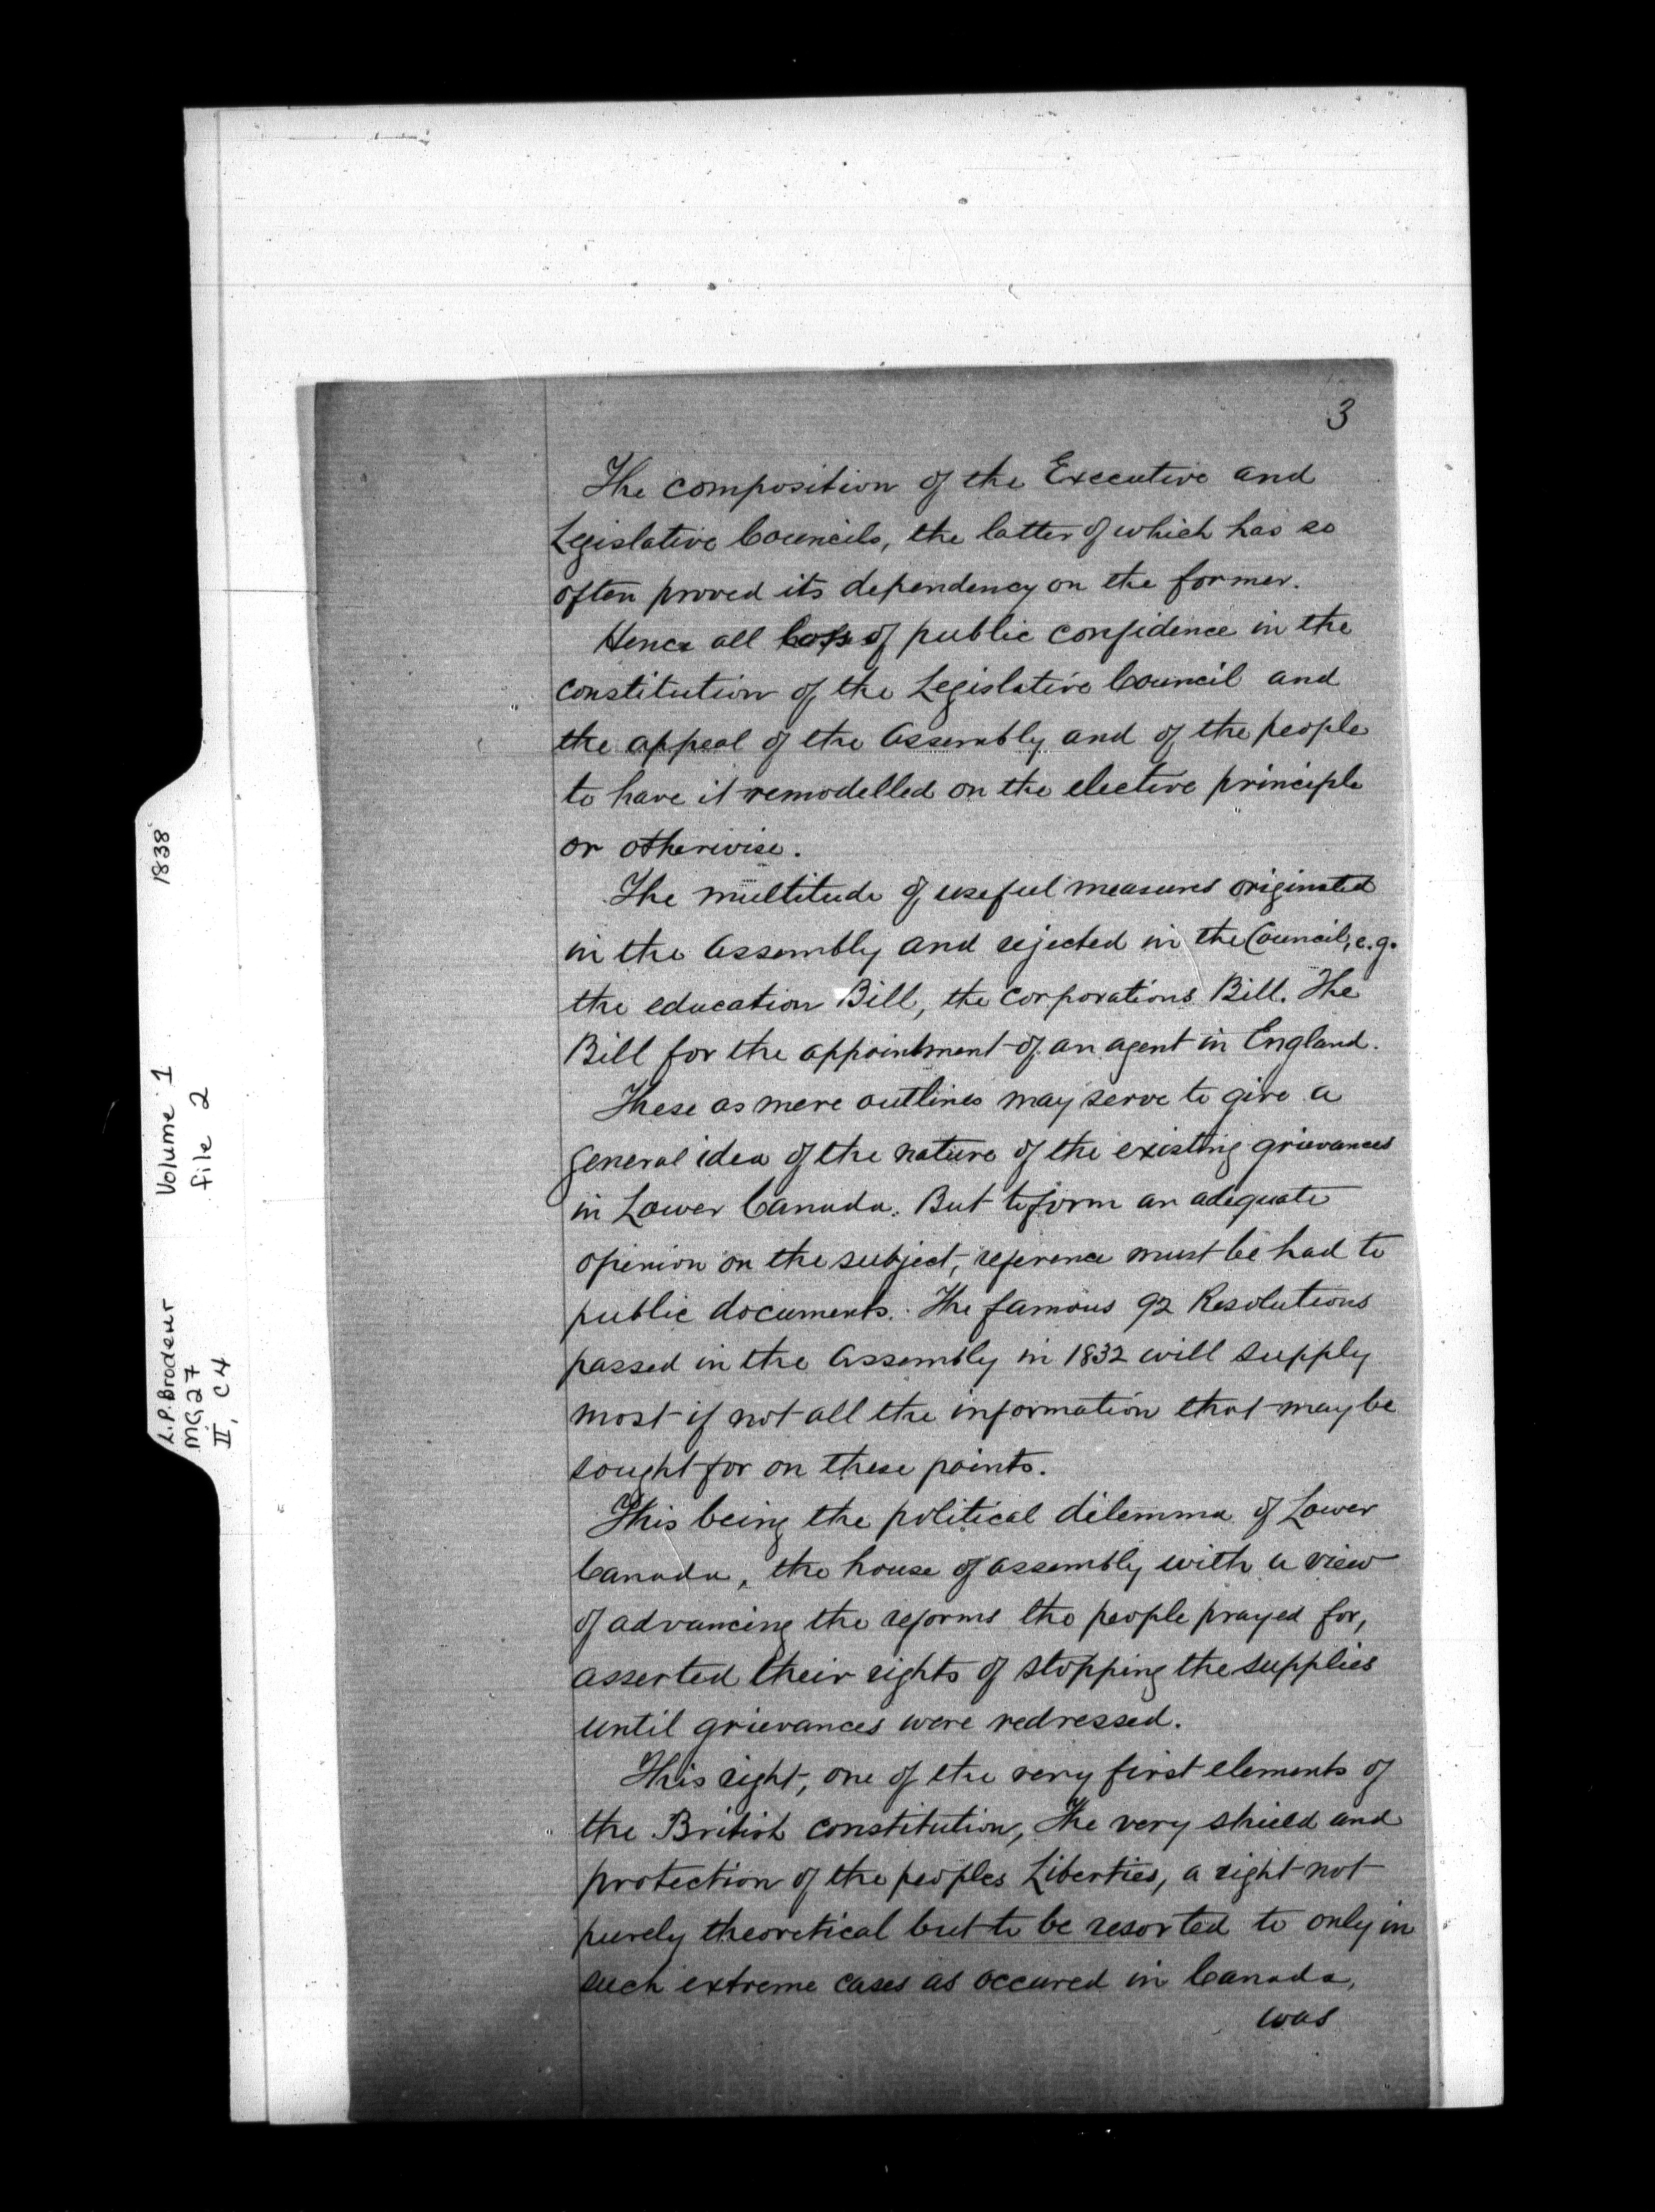 3
The composition of the Executive and
Legislative Councils, the latter of which has so
often proved its dependency on the former.
Hence all loss of public confidence in the
constitution of the Legislative Council and
the appeal of the Assembly and of the people
to have it remodelled on the elective principle
or otherwise.
The multitude of useful measures originated
in the Assembly and rejected in the Council, e.g.
the education Bill, the corporations Bill. The
Bill for the appointment of an agent in England.
These as mere outlines may serve to give a
general idea of the nature of the existing grievances
in Lower Canada. But to form an adequate
opinion on the subject, reference must be had to
public documents. The famous 92 Resolutions
passed in the Assembly in 1832 will supply
most if not all the information that may be
sought for on these points.
This being the political dilemma of Lower
Canada, the house of assembly with a view
of advancing the reforms the people prayed for,
asserted their rights of stopping the supplies
until grievances were redressed.
This right, one of the very first elements of
the British constitution, the very shield and
protection of the peoples Liberties, a right not
purely theoretical but to be resorted to only in
such extreme cases as occured in Canada,
was
L.P. Brodeur Volume 1 1838
MG27 file 2
II, C4